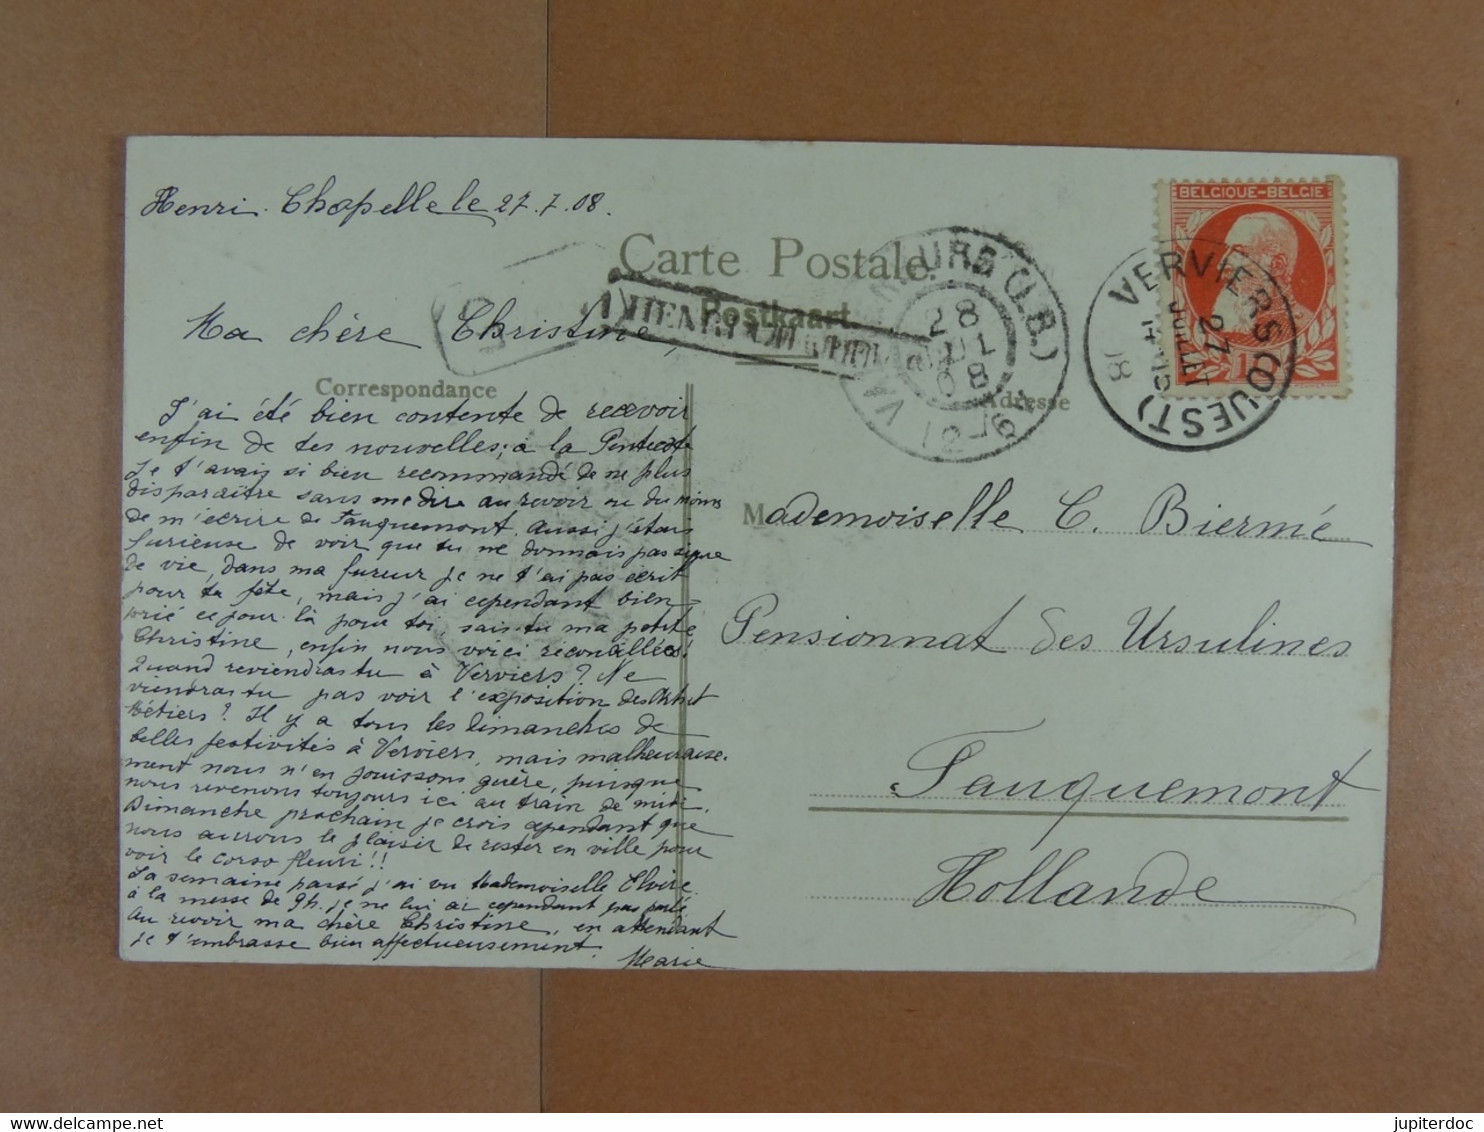 Henri. Chapelle le 27.7.08.
Carte Postale
Postkaart
HENRI-CHAPELLE
BELGIQUE-BELGIE
VERVIERS (OUEST)
27
JUILLET
08
28
JUL
08
Ma chère Christine,
Correspondance
Adresse
J'ai été bien contente de recevoir
enfin de tes nouvelles; à la Pentecôte
Je t'avais si bien recommandé de ne plus
disparaître sans me dire au revoir ou du moins
de m'écrire de Fauquemont. Aussi j'étais
furieuse de voir que tu ne donnais pas signe
de vie, dans ma fureur je ne t'ai pas écrit
pour ta fête, mais j'ai cependant bien
prié ce jour-là pour toi, sais-tu ma petite
Christine, enfin nous voici reconciliées!
Quand reviendras tu à Verviers? Ne
viendras tu pas voir l'exposition des Arts et
Métiers? Il y a tous les dimanches de
belles festivités à Verviers, mais malheureuse-
ment nous n'en jouissons guère, puisque
nous revenons toujours ici au train de midi.
Dimanche prochain je crois cependant que
nous aurons le plaisir de rester en ville pour
voir le corso fleuri!!
La semaine passé j'ai vu Mademoiselle Elvire
à la messe de 9h. je ne lui ai cependant pas parlé
Au revoir ma chère Christine, en attendant
je t'embrasse bien affectueusement.
Marie
Mademoiselle C. Biermé
Pensionnat des Ursulines
Fauquemont
Hollande
jupiterdoc